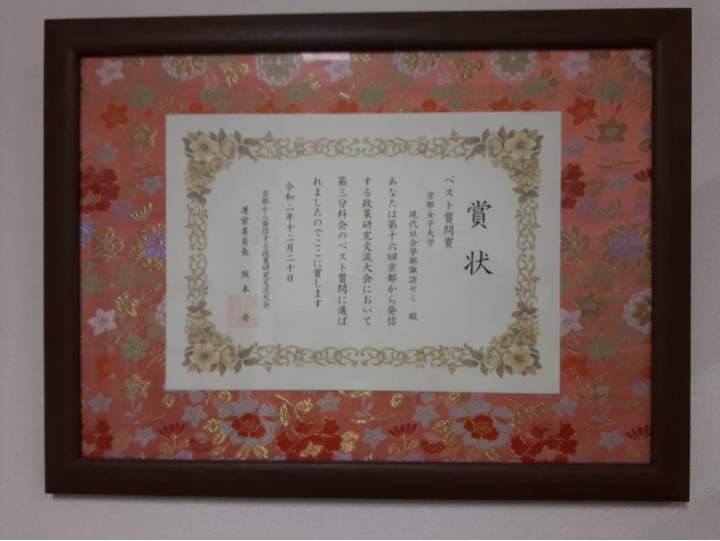 賞状
ベスト質問賞
京都女子大学
現代社会学部諏訪ゼミ 殿
あなたは第十六回京都から発信
する政策研究交流大会において
第三分科会のベスト質問に選ば
れましたのでここに賞します
令和二年十二月二十日
京都から発信する政策研究交流大会
運営委員長 阪本 崇